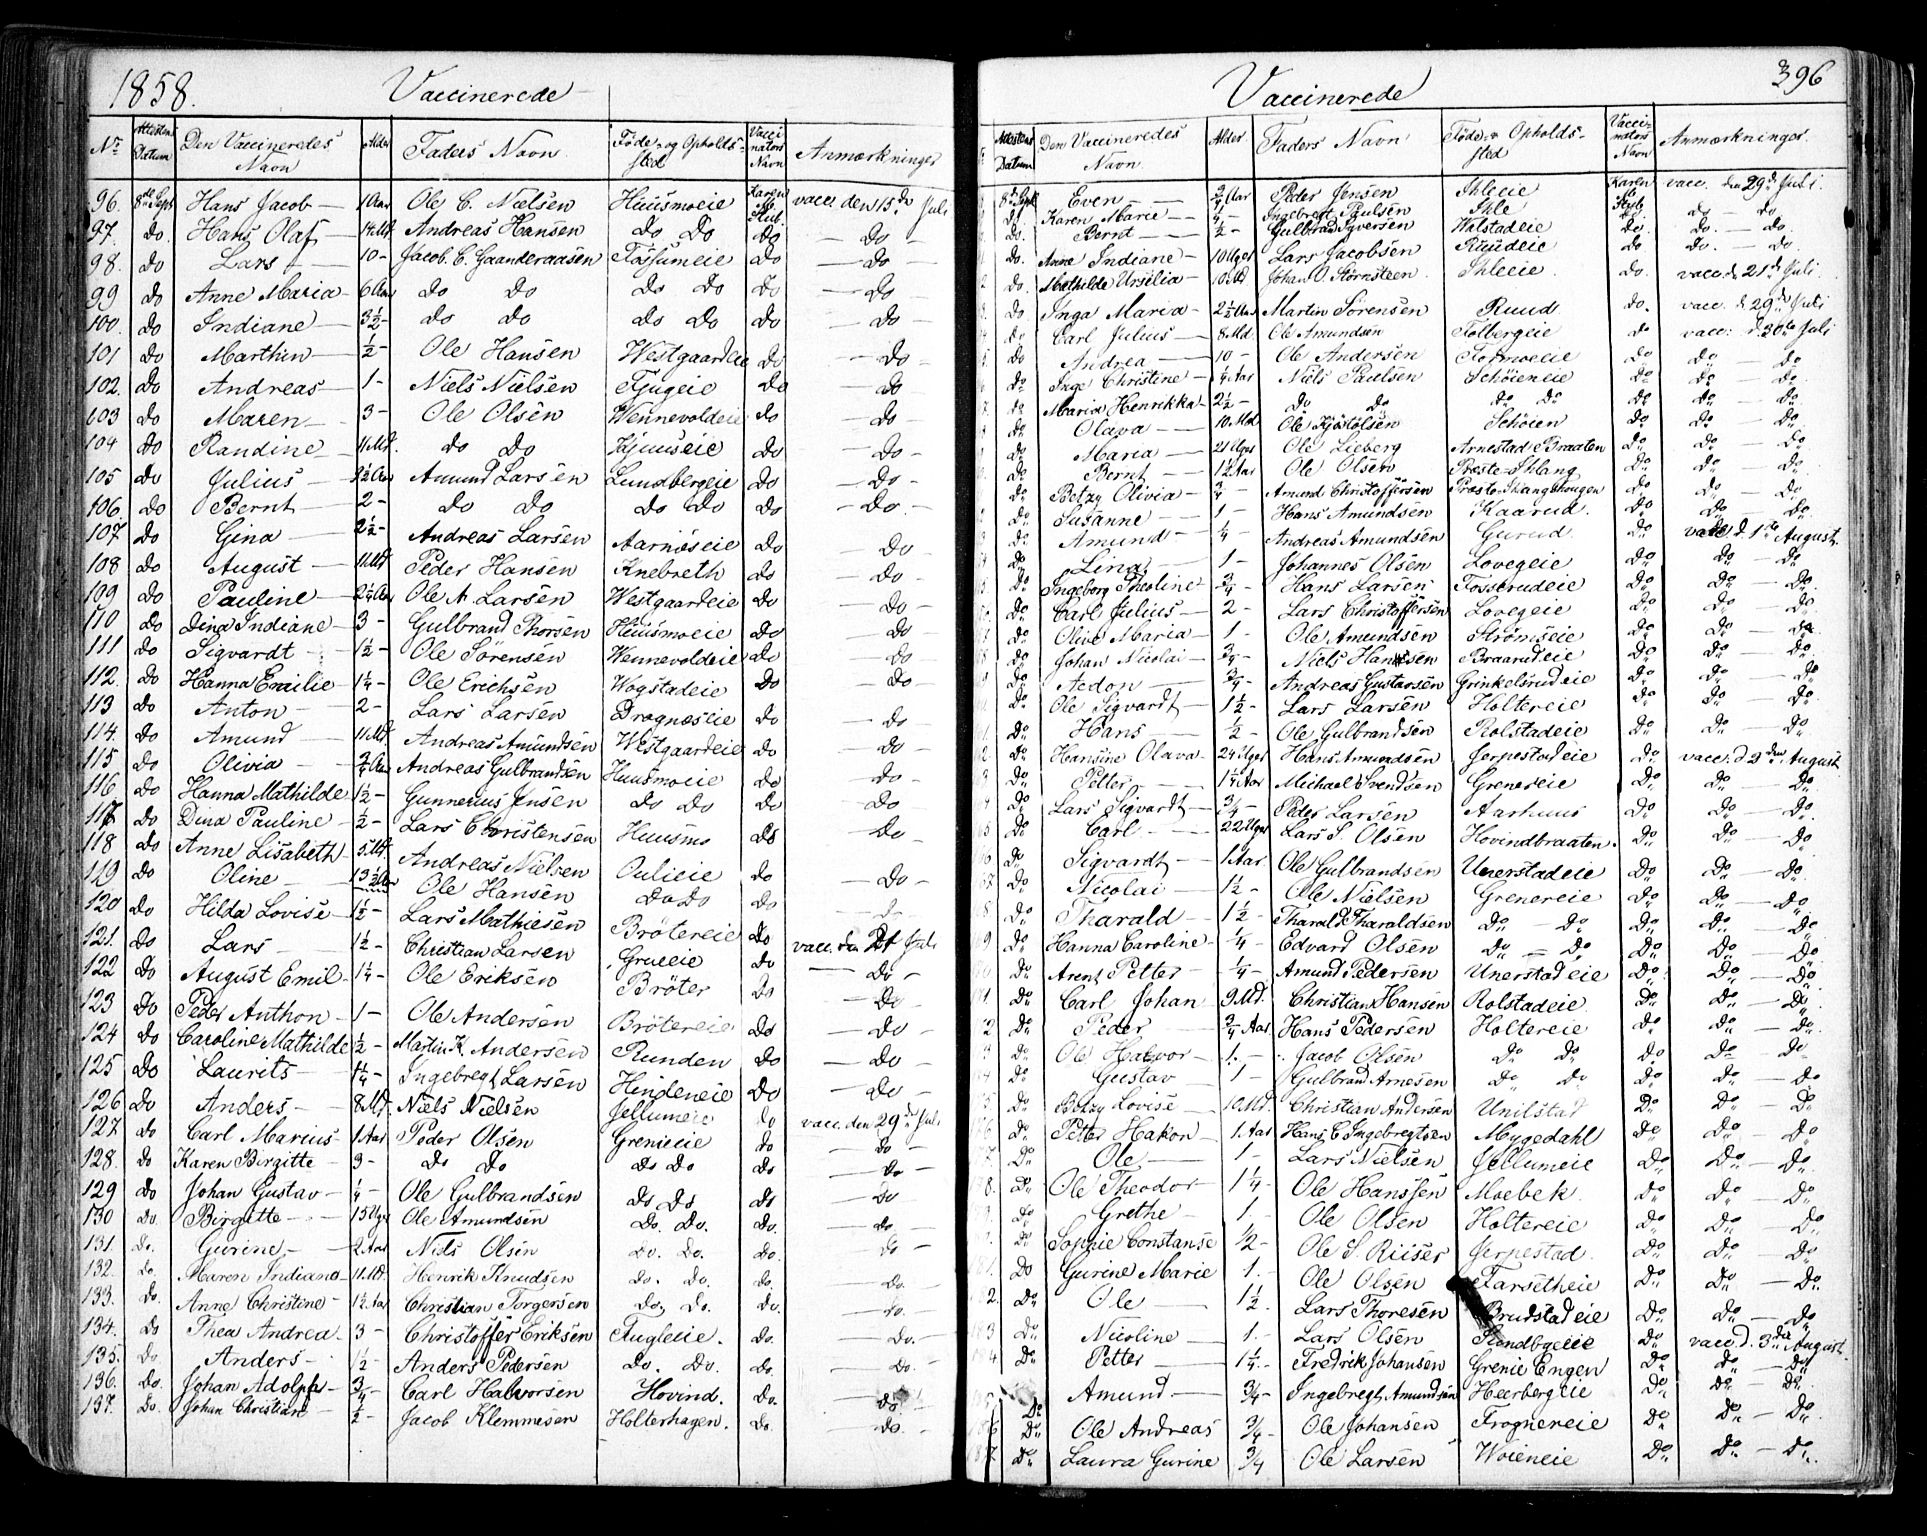 1858. Vaccinerede
No Attestens Datum Den Vaccineredes Navn Alder Faders Navn Føde- og Opholds-sted Vaccinators Navn Anmærkninger
96. 8de Sept Hans Jacob — 1 Aar Ole C. Nielsen Huusmoeie Karen vacc. den 15de Juli
97. do. Hans Olaf — Md. Andreas Hansen Do Do Do — Do —
98. do Lars — 10 - Jacob C. Gaanderaasen Fossumeie Do — Do —
99 do Anne Maria — 6 Aar do do do do Do — Do
100. do Indiane — 3½ - do do do do do — Do —
101 do Marthin — ½ - Ole Hansen Westgaardeie do — Do
102. do Andreas — 1 - Niels Nielsen do — do
103 do Maren — 3 - Ole Olsen Wennevoldeie do — do
104 do Randine — 11 Md. do do do — Do -
105 do Julius — 2½ Aar Amund Larsen Lundbergeie do — Do -
106. do Bernt — 2 - do do do do do — Do. -
107 do Gina — 2½ - Andreas Larsen Aarnæseie do — Do -
108 do August — 11 Md. Peder Hansen Knebreth do — Do -
109 do Pauline — Aar Ole A. Larsen Westgaardeie do — Do -
110 do Dina Indiane — 3 - Gulbrand Thorsen Huusmoeie do — Do
111 do Sigvardt 1½ - Ole Sørensen Wennevoldeie do — Do
112. do Hanna Emilie — 1¼ - Ole Erichsen Wogstadeie do — Do -
113 do Anton — 2 - Lars Larsen Dragnæseie do — Do -
114. do Amund 11 Md. Andreas Amundsen Westgaardeie do — Do -
115 do Olivia — ¾ Aar Andreas Gulbrandsen Huusmoeie do — Do -
116 do Hanna Mathilde 1½ - Gunnerius Jensen do do do — Do
117 do Dina Pauline — ½ - Lars Christensen Huusmo do — Do -
118 do Anne Lisabeth — 5 Md. Andreas Nielsen Oulieie do — Do -
119 do Oline Aar Ole Hansen do do do
120 do Hilda Lovise — 1½ - Lars Mathiesen Brötereie do vacc. den 21 Juli
121. do Lars — 1½ - Christian Larsen Grueeie do — Do -
122 do August Emil — 1¼ - Ole Eriksen Bröter do — Do -
123 do Peder Anthon — 1 - Ole Andersen Brötereie do — Do -
124 do Caroline Mathilde ½ - Martin K. Andersen Runden do — Do -
125 do Laurits — 1¼ - Ingebregt Larsen Hindeneie do — Do -
126 do Anders — 8 Md. Niels Nielsen Jellumeie do vacc. den 29de Juli
127. do Carl Marius — 1 Aar Peder Olsen Grenieeie do — do -
128. do Karen Birgitte — 3 - do do do do do — do -
129 do Johan Gustav — ¼ - Ole Gulbrandsen do do do — do
130 do. Birgitte — 15 Uger Ole Amundsen do. do. do. — do -
131. do. Gurine — 2 Aar Niels Olsen do. do. do. — do -
132. do. Maren Indiana — 11 Md. Henrik Knudsen do. do. do. — do. -
133. do. Anne Christine — 1½ Aar Christian Torgersen do. do. do. — do. -
134. do Thea Andrea — 3 - Christoffer Eriksen Fugleeie. do. — do. -
135. do Anders — 1½ - Anders Pedersen do. do. do. — do. -
136. do. Johan Adolph — ¾ - Carl Halvorsen Hovind. do. — do
137. do. Johan Christian ½ - Jacob Klemmesen Holterhagen. do. — do. -
Vaccinerede 396
Attestens Datum Den Vaccineredes Navn Alder Faders Navn Føde- & Opholds-sted Vaccinators Navn Anmærkninger.
8de Sept Even — ¾ Aar Peder Jensen Ihleeie Karen vacc. den 29de Juli.
do Karen Marie — ¼ - Ingebregt Paulsen Ihle do — do
do. Bernt — ½ - Gulbrand Syversen Wolstadeie do. do. — do.
do. Anne Indiane — 10 Uger Lars Jacobsen Ruudeie do do. — do.
do. Mathilde Ursilia — 10 Md Johan O. Stornsteen Ihleeie. do. vacc. d. 21de Juli
do Inga Maria — 2½ Aar Martin Sørensen Ruud do. vacc. d. 29de Juli
do Carl Julius — 8 Md. Ole Amundsen do vacc. d. 30te Juli
do Andrea — 10 - Ole Andersen Formoeie do do — do
do Inge Christine — Aar Niels Paulsen Schöieneie do do — do
do Maria Henrikka — 2½ - do do do do do do — do
do Olava — 10 Md Ole Kjöstolsen Schöien do do — do
do Maria — 21 Uger Ole Lieberg Arnestad Braaten do do — do
do Bernt — Aar Ole Olsen Præste-Ihlang do do — do
do Betzy Olivia — ¾ - Amund Christoffersen do do — do
do Susanne — 1 - Hans Amundsen Kaarud. do do — do.
do Amund — ¼ - Andreas Amundsen Gurud do vacc. d. 1ste August.
do Lina — 1 - Johannes Olsen Lovegeie do do — do
do Ingeborg Theoline ¾ - Hans Larsen Fosserudeie do do — do.
do Carl Julius — 2 - Lars Christoffersen Lovegeie do do — do
do Olive Maria — 1 - Ole Amundsen Strömseie do do — do.
do Johan Nicolai — ¾ - Niels Hansen Braarudeie do do — do
do Aedon — ¾ - Andreas Gustavsen Grinkelsrudeie do do — do
do Ole Sigvardt — 1½ - Lars Larsen Holtereie do do — do
do Hans — ½ - Ole Gulbrandsen Rolstadeie do do — do
do Hansine Olava — 24 Uger Hans Amundsen Jerpestadeie do vacc. d. 2den August
do Petter — 1¼ Aar Michael Svendsen Grenereie do do — do.
do Lars Sigvardt — ¾ - Peder Larsen Aarhuus do do — do.
do Carl — 22 Uger Lars S. Olsen Hovindbraaten. do do — do
do Sigvardt — 1 Aar Ole Gulbrandsen Unerstadeie do do — do
do Nicolai — 1½ - Ole Nielsen Grenereie do do — do
do Tharald — 1½ - Tharald Tharaldsen do — do do do — do.
do Hanna Caroline — ¼ - Edvard Olsen do — do do do — do
do Arent Petter — ¼ - Amund Pedersen Unerstadeie do do — do
do Carl Johan 9 Md. Christian Hansen Rolstadeie do do — do
do Peder — ¾ Aar Hans Pedersen Holtereie do do — do
do Ole Halvor — 1 - Jacob Olsen do do do do — do
do Gustav 1 - Gulbrand Arnesen do do do do — do
do Betzy Lovise — 10 Md. Christian Andersen Unilstad do do — do
do Peter Hakon — 1 Aar Hans C. Ingebregtsen Mygedahl do do — do
do Ole — 1 - Lars Nielsen Jellumeie do do — do
do Ole Theodor — 1¼ - Ole Hanssen Moebek. do do — do
do Grethe — 1 - Ole Olsen Holtereie do do — do
do Sophie Constanse ½ - Ole S. Riiser Jerpestad. do do — do
do Gurine Marie 1. - Ole Olsen Farsetheie do do — do.
do Ole 1½. Lars Thoresen Brudstadeie do do — do
do Nicoline — 1. - Lars Olsen do vacc. d. 3die August.
do Petter — 1¼. - Fredrik Johansen Grenie Engen do do — do
Amund — ¾ - Ingebregt Amundsen Heerbergeie do do — do.
do Ole Andreas ¾ - Ole Johansen Frognereie do do — do.
do Laura Gurine ¾ Ole Larsen Woieneie do do — do.